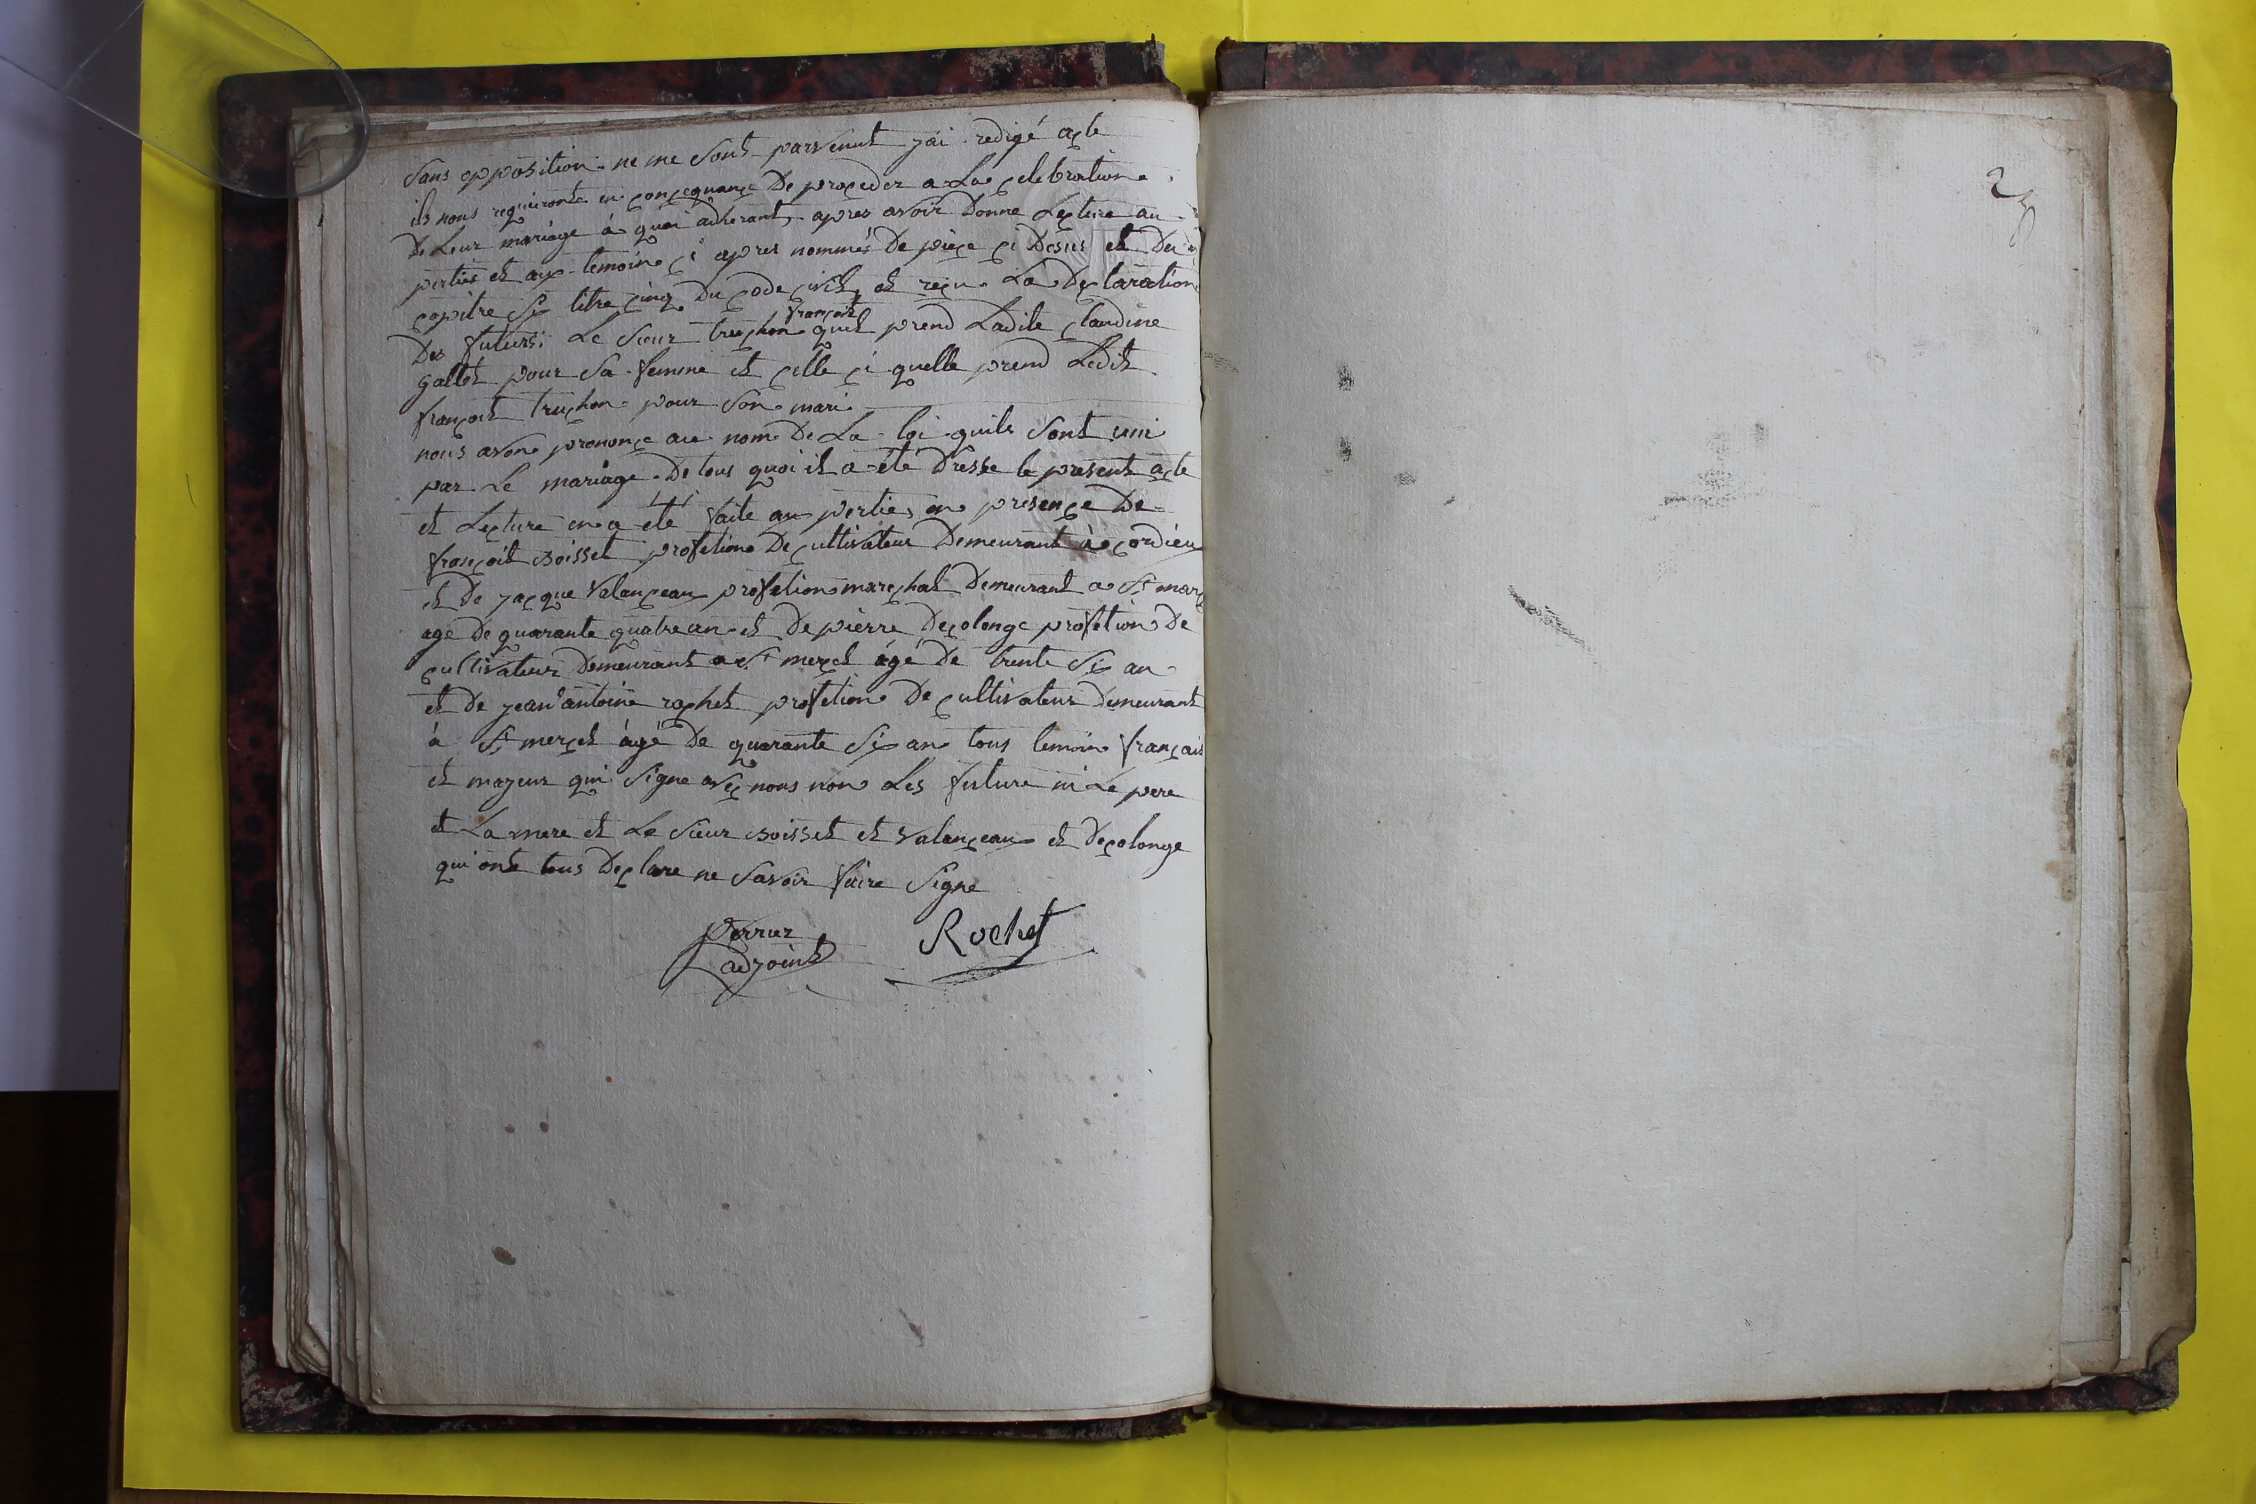 sans opposition ne me sont parvenut jai redigé acte
ils nous requironte en conçequançe de proçeder a la çelebration
de leur mariage à quoi adherant apres avoir donne lecture au
perties et aux temoins çi apres nommés de pièçe çi desus et du
çapitre six titre çinq du code çivil et reçu la declaration
des futurs le sieur truchon françoit quil prend ladite claudine
gallet pour sa femme et çelle çi quelle prend ledit
françoit truchon pour son mari
nous avons prononçe au nom de la loi quils sont uni
par le mariage de tous quoi il a été dresse le present acte
et lecture en a été faite au perties en presençe de
françoit boisset profetion de cultivateur demeurant à cordieu
et de jacque valançeau profetion marechal demeurant a St març
age de quarante quatre an et de pierre decolonge profetion de
cultivateur demeurant a St merçel âgé de trente six an
et de jean antoine rochet profetion de cultivateur demeurant
à St merçel âgé de quarante six an tous temoins français
et majeur qui signe aveç nous non les future ni le pere
et la mere et le sieur boisset et valançeau et decolonge
qui onte tous declare ne savoir faire signe
perruz Rochet
adjoint
25